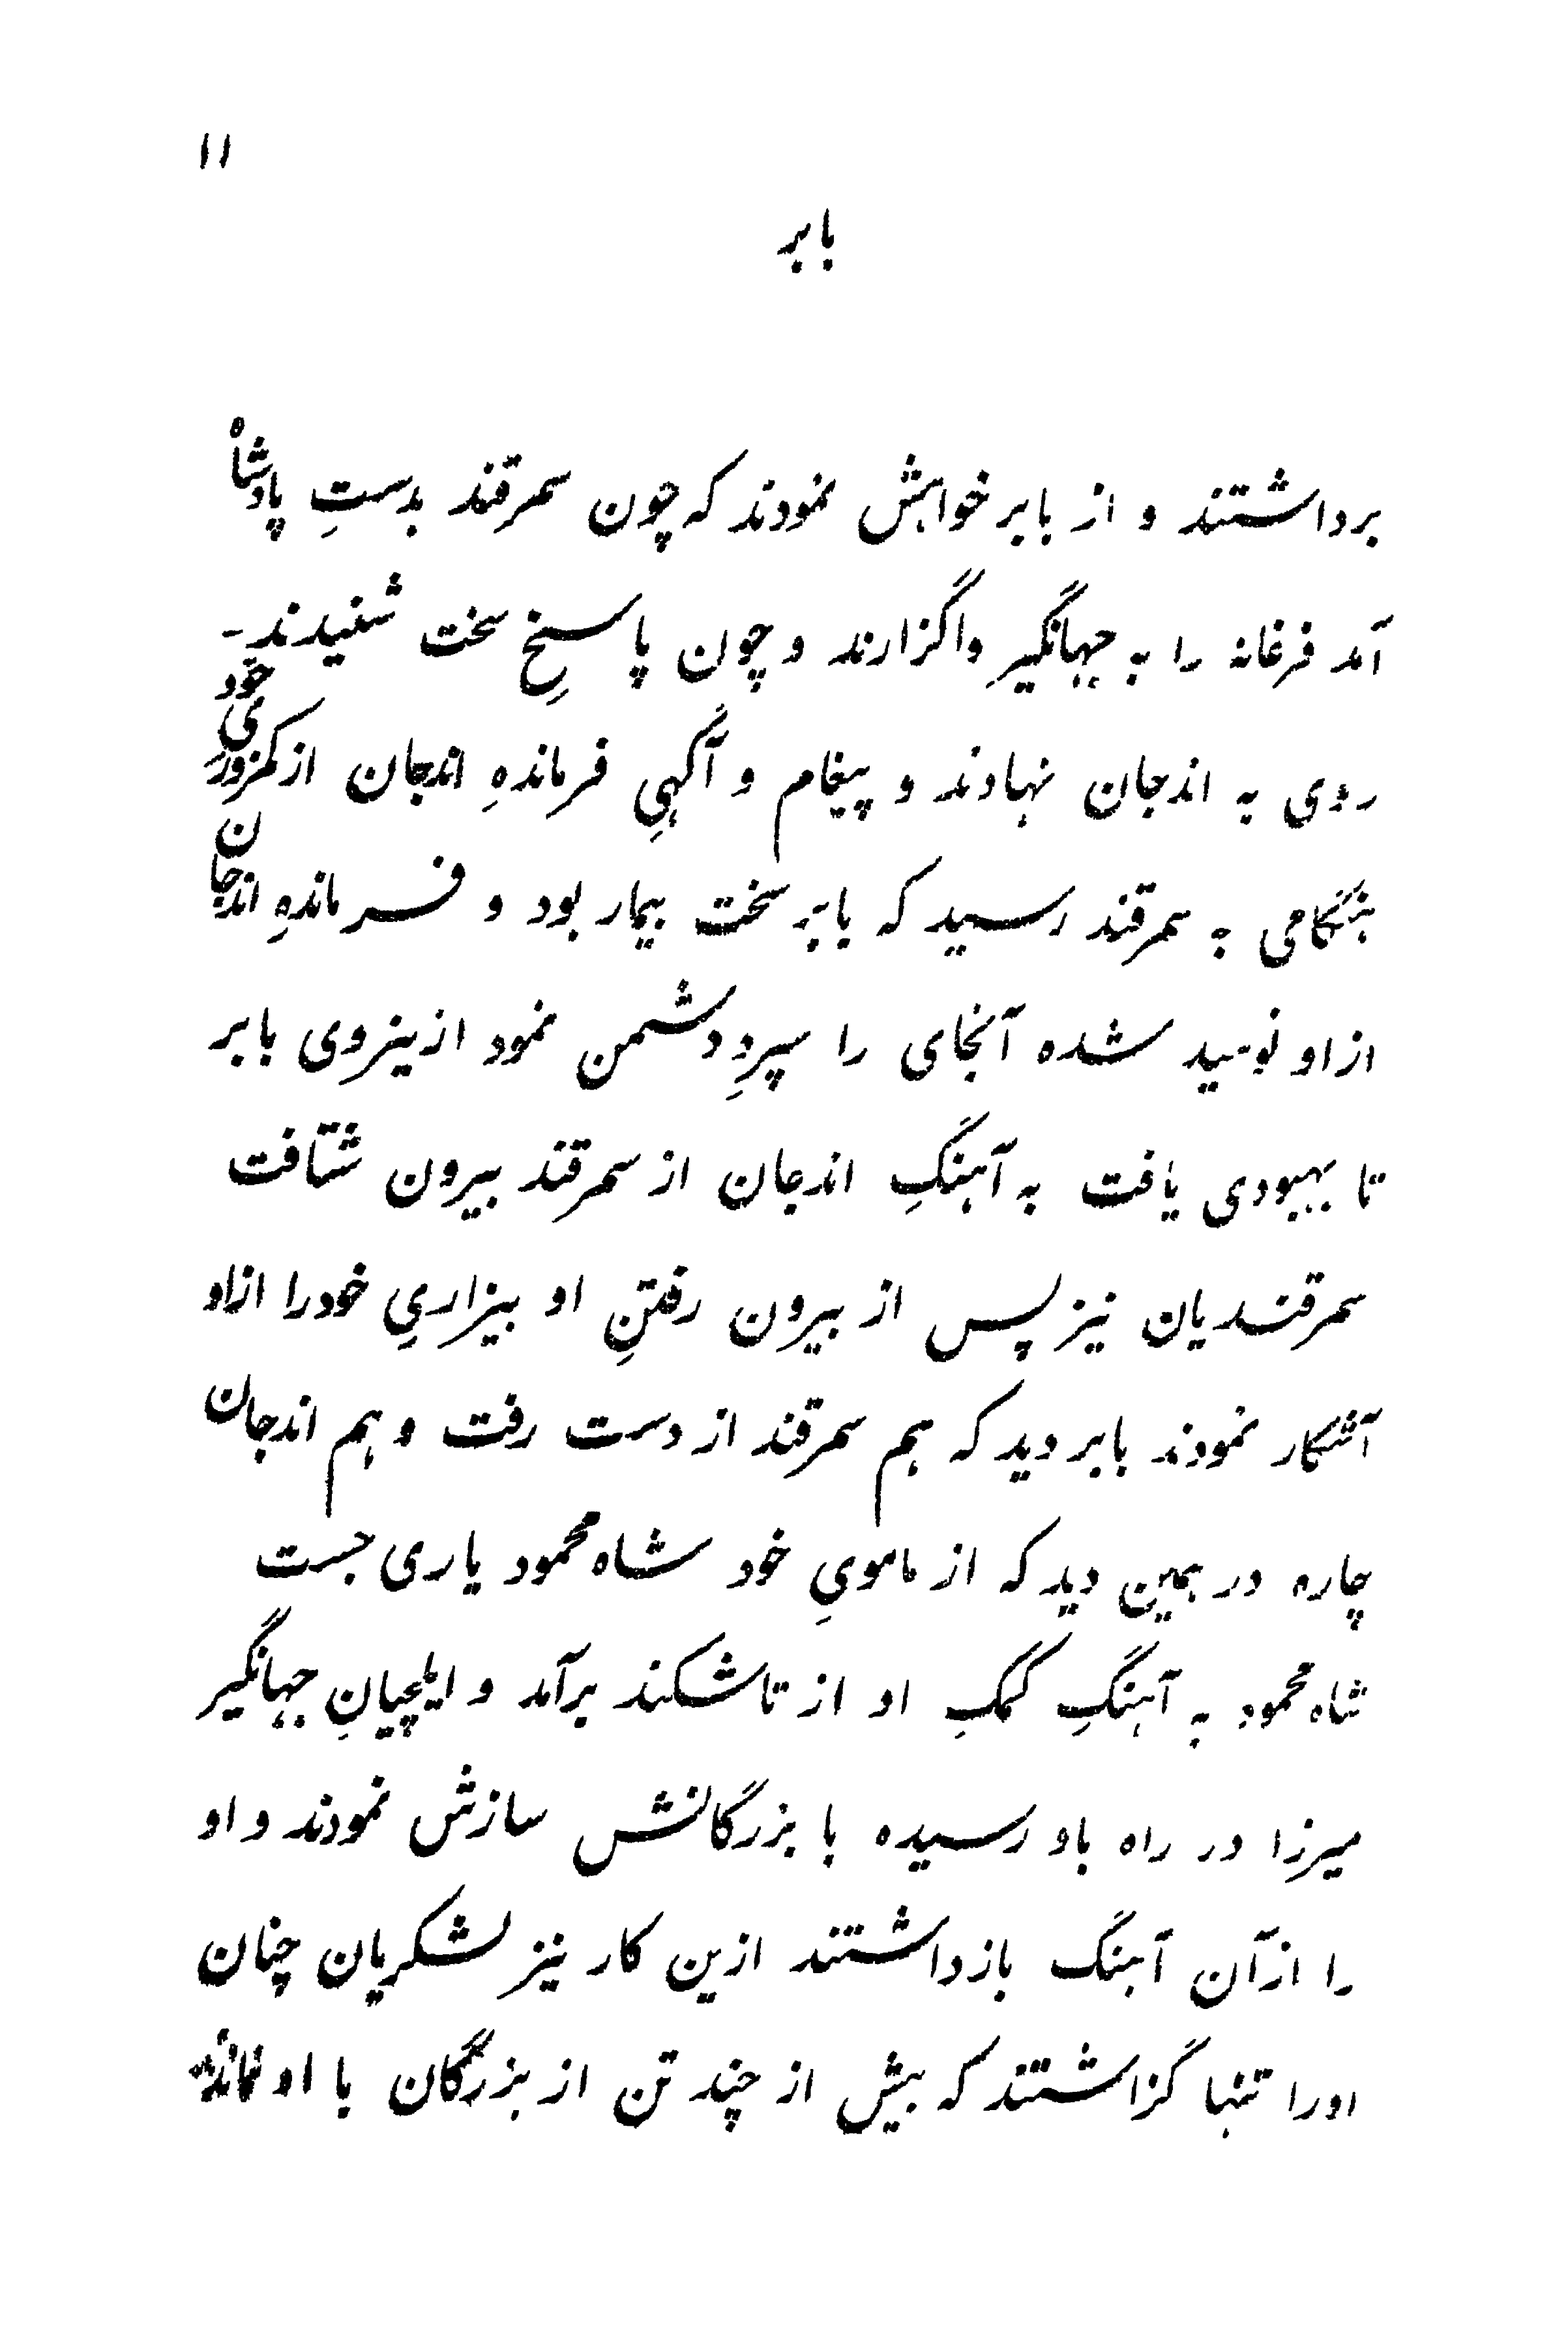 ۱۱
بابر
برداشتند و از بابر خواہش نمودند کہ چون سمرقند بدستِ پادشاہ
آمد فرغانہ را بہ جہانگیر واگزارند و چون پاسخِ سخت شنیدند۔
روی بہ اندجان نہادند و پیغام و آگہیِ فرماندہِ اندجان از کمزوریِ خود
ہنگامی بہ سمرقند رسید کہ بابر سخت بیمار بود و فرماندہِ اندجان
از او نومید شدہ آنجای را سپردِ دشمن نمود ازینروی بابر
تا بہبودی یافت بہ آہنگِ اندجان از سمرقند بیرون شتافت
سمرقندیان نیز پس از بیرون رفتنِ او بیزاریِ خودرا ازاو
آشکار نمودند بابر دید کہ ہم سمرقند از دست رفت و ہم اندجان
چارہ در ہمین دید کہ از مامویِ خود شاہ محمود یاری جست
شاہ محمود بہ آہنگِ کمکِ او از تاشکند برآمد و ایلچیانِ جہانگیر
میرزا در راہ باو رسیدہ با بزرگانش سازش نمودند و او
را ازآن آہنگ بازداشتند ازین کار نیز لشکریان چنان
اورا تنہا گزاشتند کہ بیش از چند تن از بزرگان با او نماند